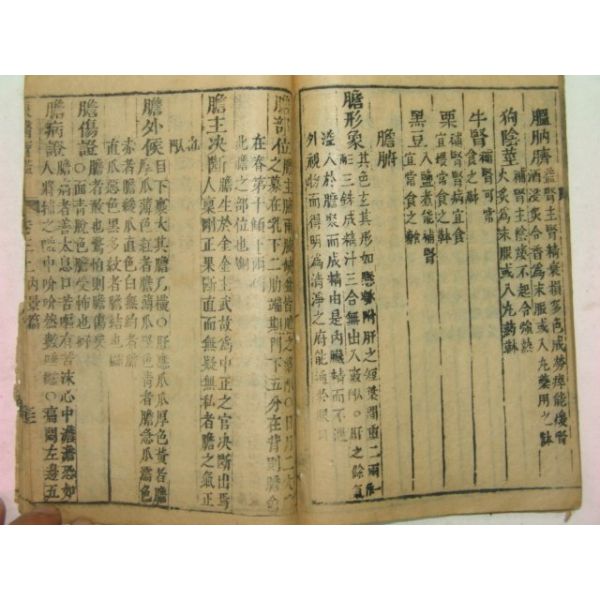 膃肭臍 益腎主腎精衰損多色成勞瘁能煖腎
酒浸炙令香爲末服或入丸藥用之
狗陰莖 補腎主陰痿不起令強熱
大火炙爲末服或入丸藥
牛腎 補腎可常
食之
栗 補腎腎病宜食
宜煨常食之
黑豆 入鹽煮能補腎
宜常食之
膽腑
膽形象 其色玄其形如懸瓠附肝之短葉間重二兩
三銖成精汁三合無出入竅○肝之餘氣
溢入於膽聚而成精由是內臟精而不泄
外視物而得明爲清淨之府能通於眼目
膽部位 日月二穴
之募在乳下二肋端期門下五分在背則膽兪
在脊第十顀下兩傍
此膽之部位也
膽主決斷 膽生於金金主武故爲中正之官決斷出焉
人稟剛正果斷直而無疑無私者膽之氣正
也
膽外候 目下裹大其膽乃橫○肝應爪爪厚色黃者膽
厚爪薄色紅者膽薄爪堅色靑者膽急爪濡色
赤者膽緩爪直色白無約者膽
直爪惡色黑多紋者膽結也
膽傷證 膽者敢也驚怕則膽傷矣
○面靑脫色膽受怖也
膽病證 膽病者善太息口苦嘔有苦沫心中澹澹恐如
人將捕之嗌中吤吤然數唾○痛悶左邊五
內景篇